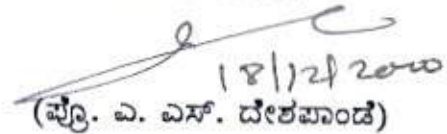 18/12/2000
(ಪ್ರೊ. ಎ. ಎಸ್. ದೇಶಪಾಂಡೆ)